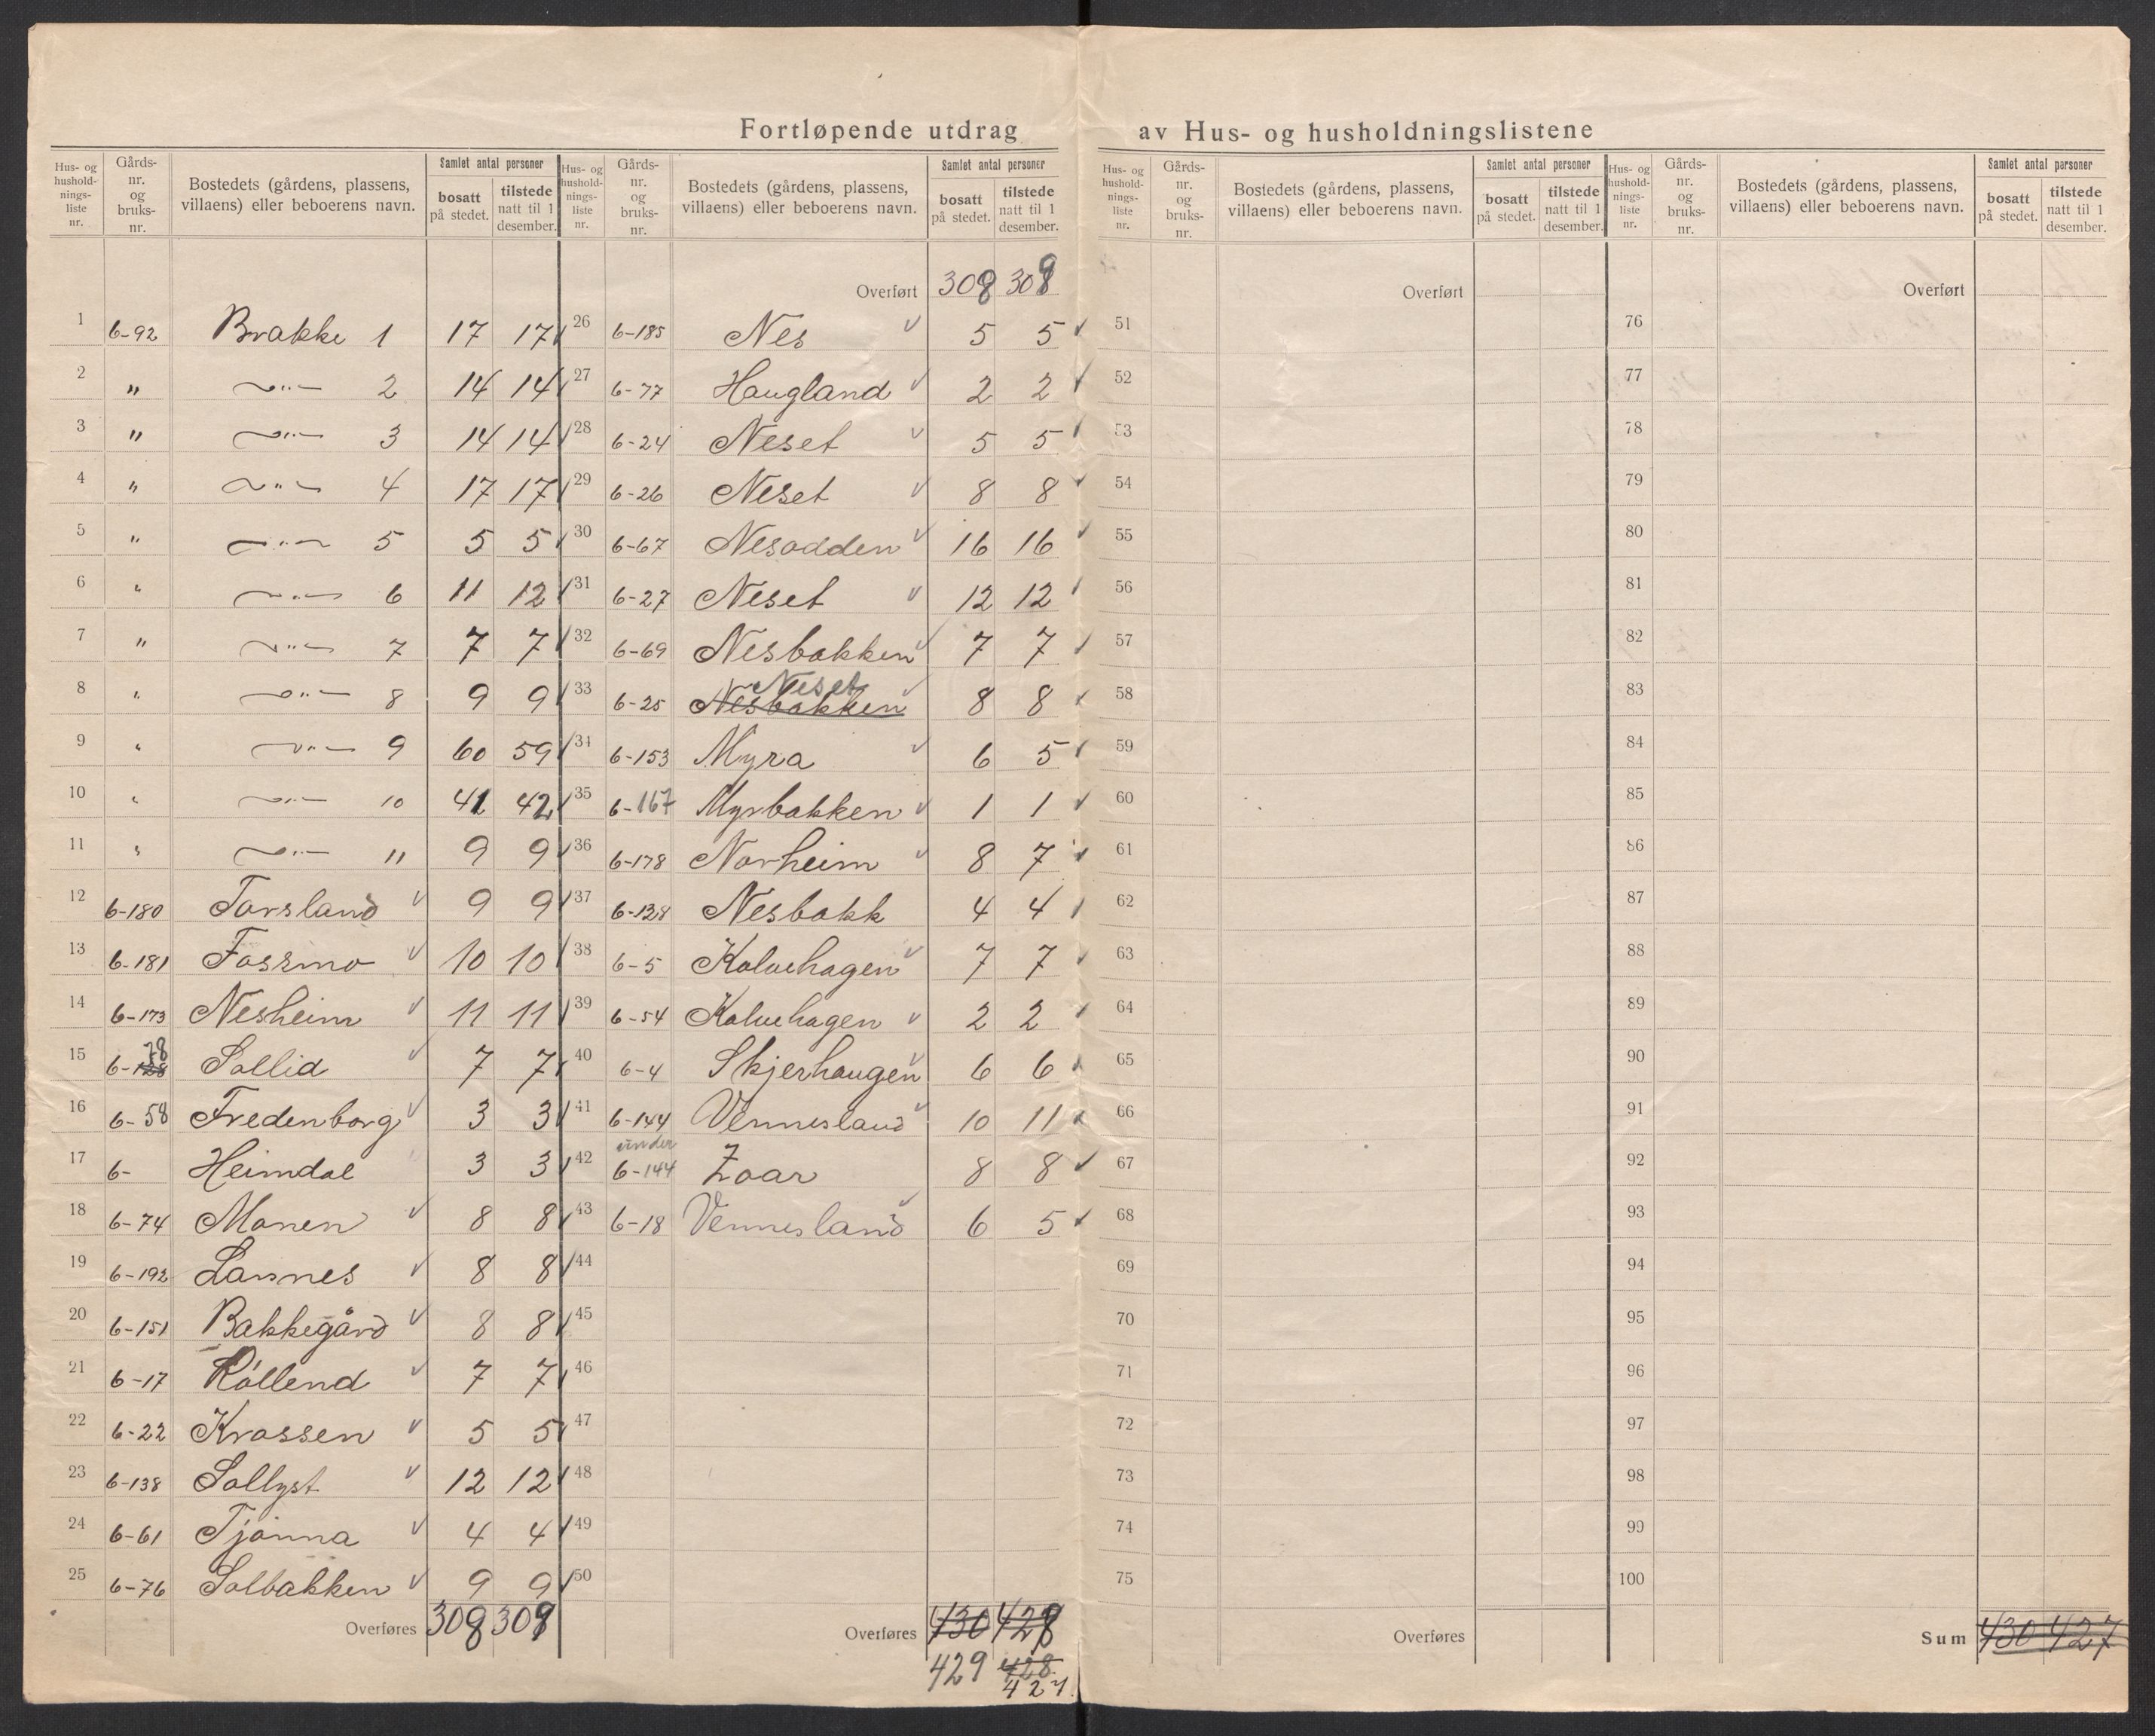 Fortløpende utdrag av Hus- og husholdningslistene
Hus- og husholdningsliste nr. Gårdsnr. og bruksnr. Bostedets (gårdens, plassens, villaens) eller beboerens navn. Samlet antal personer bosatt på stedet. tilstede natt til 1 desember.
1 6-92 Brakke 1 17 17
2 " -"- 2 14 14
3 " -"- 3 14 14
4 " -"- 4 17 17
5 " -"- 5 5 5
6 " -"- 6 11 12
7 " -"- 7 7 7
8 " -"- 8 9 9
9 " -"- 9 60 59
10 " -"- 10 41 42
11 " -"- 11 9 9
12 6-180 Torsland 9 9
13 6-181 Fossmo 10 10
14 6-173 Nesheim 11 11
15 6-78 Sollid 7 7
16 6-58 Fredenborg 3 3
17 6- Heimdal 3 3
18 6-74 Monen 8 8
19 6-192 Lannes 8 8
20 6-151 Bakkegård 8 8
21 6-17 Röllend 7 7
22 6-22 Krossen 5 5
23 6-138 Sollyst 12 12
24 6-61 Tjønna 4 4
25 6-76 Solbakken 9 9
Overføres 308 309
Hus- og husholdningsliste nr. Gårdsnr. og bruksnr. Bostedets (gårdens, plassens, villaens) eller beboerens navn. Samlet antal personer bosatt på stedet. tilstede natt til 1 desember.
Overført 308 309
26 6-185 Nes 5 5
27 6-77 Haugland 2 2
28 6-24 Neset 5 5
29 6-26 Neset 8 8
30 6-67 Nesodden 16 16
31 6-27 Neset 12 12
32 6-69 Nesbakken 7 7
33 6-25 Nesbakken Neset 8 8
34 6-153 Myra 6 5
35 6-167 Myrbakken 1 1
36 6-178 Norheim 8 7
37 6-128 Nesbakk 4 4
38 6-5 Kalvehagen 7 7
39 6-54 Kalvehagen 2 2
40 6-4 Skjerhaugen 6 6
41 6-144 Vennesland 10 11
42 under 6-144 Zoar 8 8
43 6-18 Vennesland 6 5
44
45
46
47
48
49
50
Overføres 430 428
429 428
427
Hus- og husholdningsliste nr. Gårdsnr. og bruksnr. Bostedets (gårdens, plassens, villaens) eller beboerens navn. Samlet antal personer bosatt på stedet. tilstede natt til 1 desember.
Overført
51
52
53
54
55
56
57
58
59
60
61
62
63
64
65
66
67
68
69
70
71
72
73
74
75
Overføres
Hus- og husholdningsliste nr. Gårdsnr. og bruksnr. Bostedets (gårdens, plassens, villaens) eller beboerens navn. Samlet antal personer bosatt på stedet. tilstede natt til 1 desember.
Overført
76
77
78
79
80
81
82
83
84
85
86
87
88
89
90
91
92
93
94
95
96
97
98
99
100
Sum 430 427